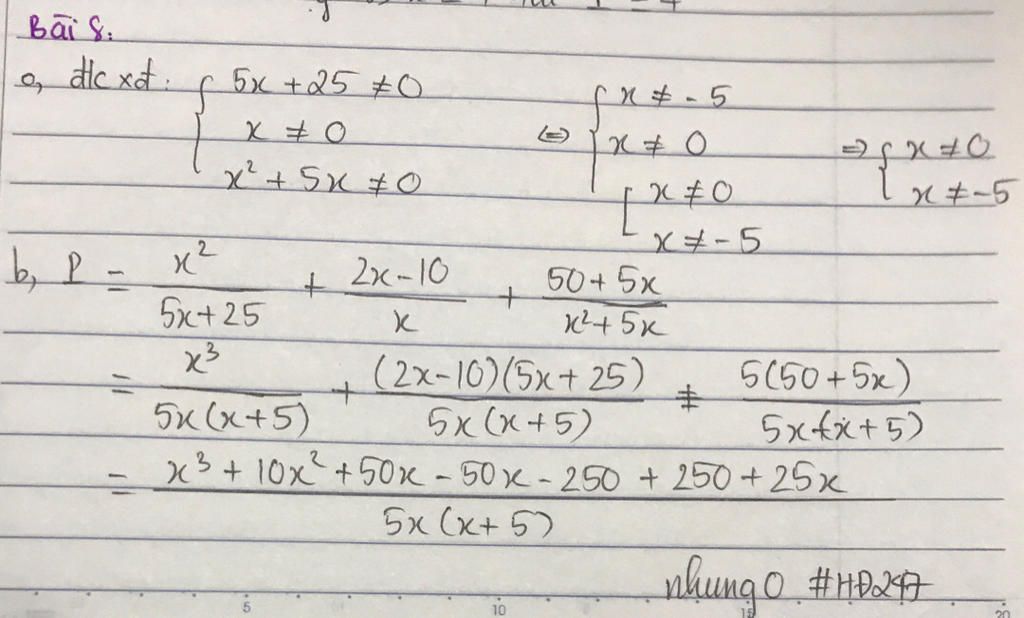 Bài 8.
a, đk xđ: { 5x + 25 ≠ 0 ⇔ { x ≠ -5 ⇒ { x ≠ 0
x ≠ 0 x ≠ 0 x ≠ -5
x² + 5x ≠ 0 [ x ≠ 0
x ≠ -5
b, P = x²/(5x+25) + (2x-10)/x + (50+5x)/(x²+5x)
= x³/(5x(x+5)) + (2x-10)(5x+25)/(5x(x+5)) + 5(50+5x)/(5x(x+5))
= (x³ + 10x² + 50x - 50x - 250 + 250 + 25x)/(5x(x+5))
nhung0 #HĐ247
5 10 15 20